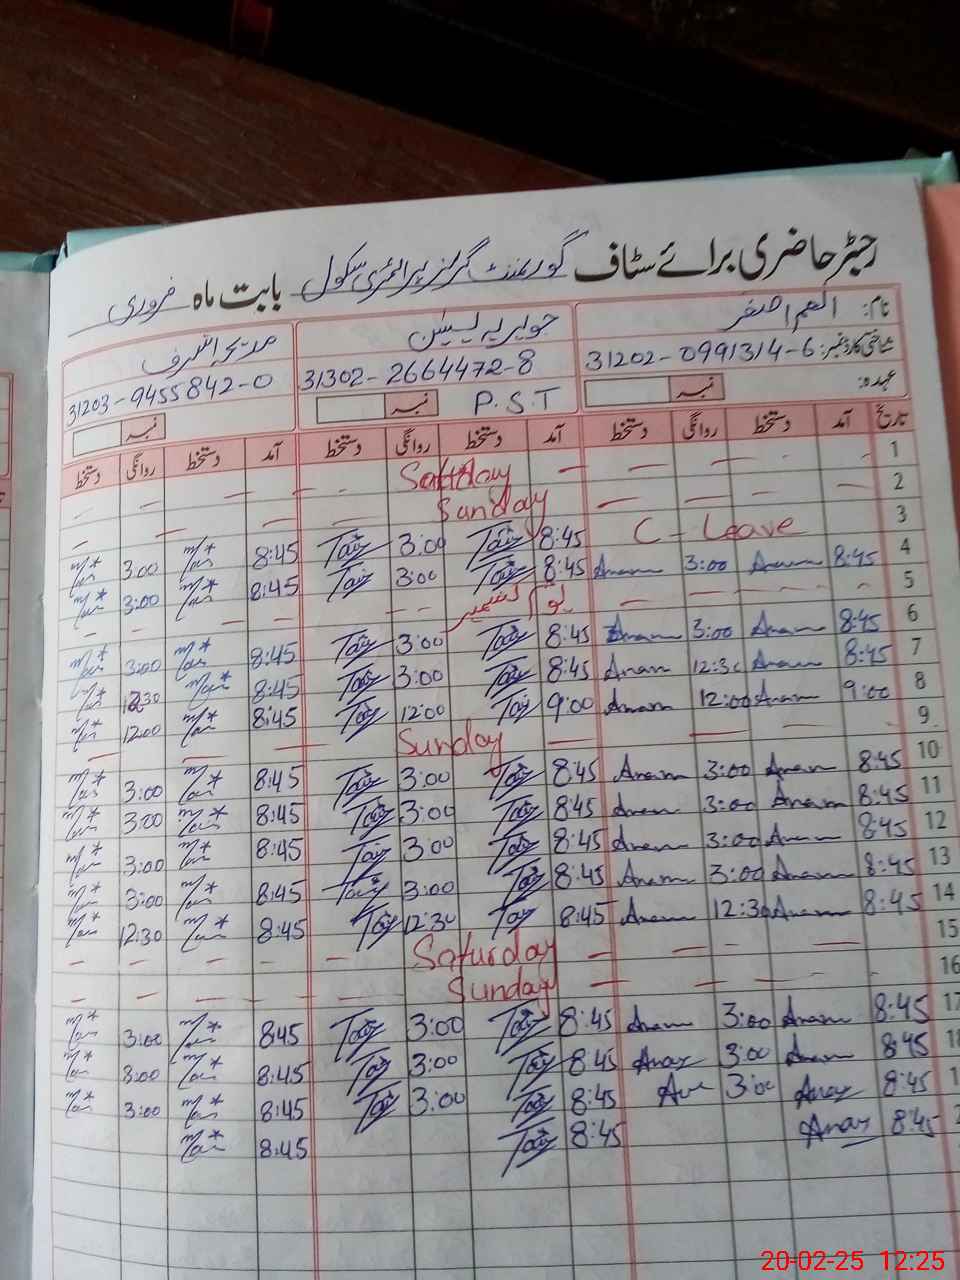 رجسٹر حاضری برائے سٹاف گورنمنٹ گرلز پرائمری سکول بابت ماہ فروری
نام: انعم اصغر جویریہ یسین مدیحہ اشرف
شناختی کارڈ نمبر: 31202-0991314-6 31302-2664472-8 31203-9455842-0
عہدہ: نمبر P.S.T نمبر نمبر
تاریخ آمد دستخط روانگی دستخط آمد دستخط روانگی دستخط آمد دستخط روانگی دستخط
1 Saturday
2 Sunday
3 C-Leave 8:45 3:00 8:45 3:00
4 8:45 Anam 3:00 Anam 8:45 3:00 8:45 3:00
5 یوم کشمیر
6 8:45 Anam 3:00 Anam 8:45 3:00 8:45 3:00
7 8:45 Anam 12:30 Anam 8:45 3:00 8:45 12:30
8 9:00 Anam 12:00 Anam 9:00 12:00 8:45 12:00
9 Sunday
10 8:45 Anam 3:00 Anam 8:45 3:00 8:45 3:00
11 8:45 Anam 3:00 Anam 8:45 3:00 8:45 3:00
12 8:45 Anam 3:00 Anam 8:45 3:00 8:45 3:00
13 8:45 Anam 3:00 Anam 8:45 3:00 8:45 3:00
14 8:45 Anam 12:30 Anam 8:45 12:30 8:45 12:30
15 Saturday
16 Sunday
17 8:45 Anam 3:00 Anam 8:45 3:00 8:45 3:00
8:45 Anam 3:00 8:45 3:00 8:45 3:00
8:45 3:00 8:45 3:00 8:45 3:00
8:45 8:45 8:45
20-02-25 12:25